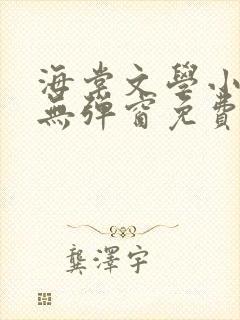 海棠文學小
無彈窗免費
龔澤宇